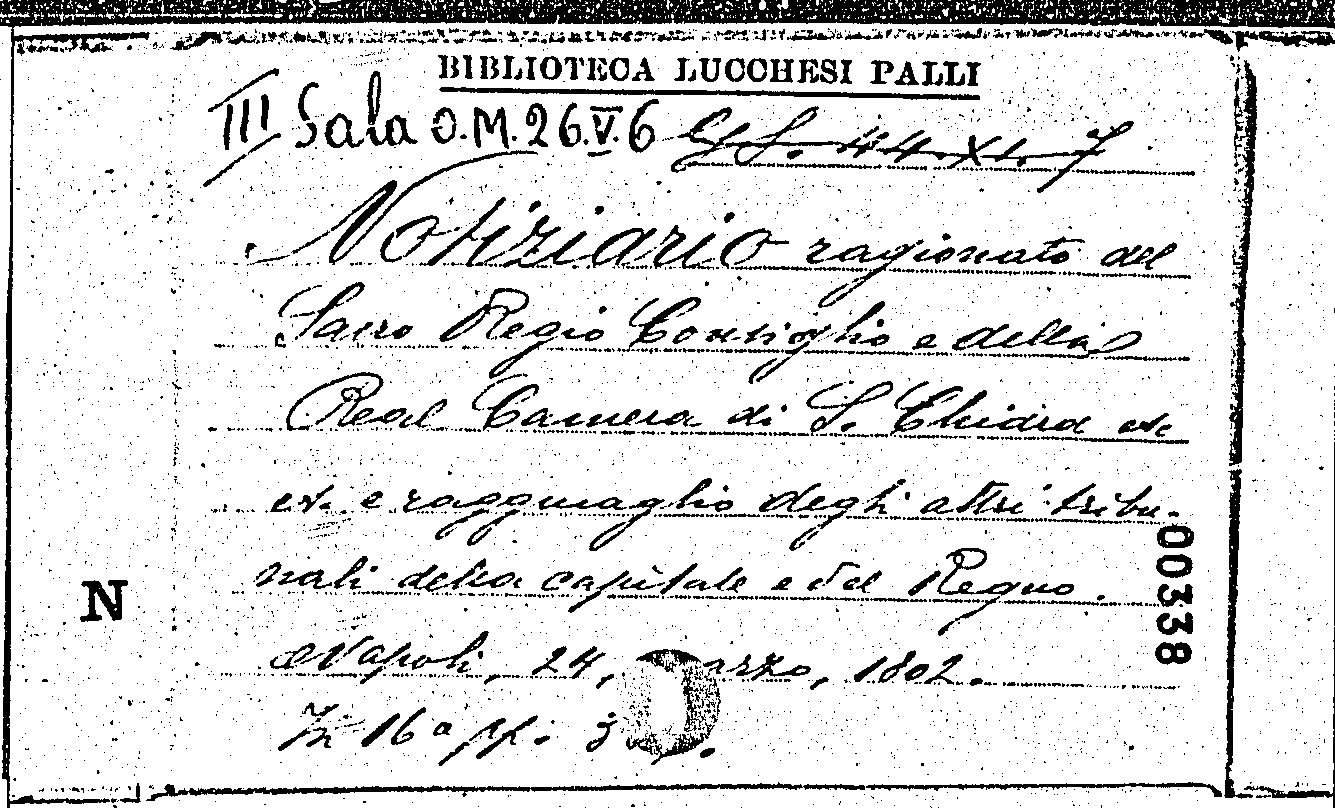 BIBLIOTECA LUCCHESI PALLI
III Sala O.M. 26.V.6 G.S. 44.XI.7
Notiziario ragionato del
Sacro Regio Consiglio e della
Real Camera di S. Chiara etc
et. e ragguaglio degli altri tribu-
nali della capitale e del Regno.
Napoli, 24, arzo, 1802.
In 16° pp. 3
N
00338